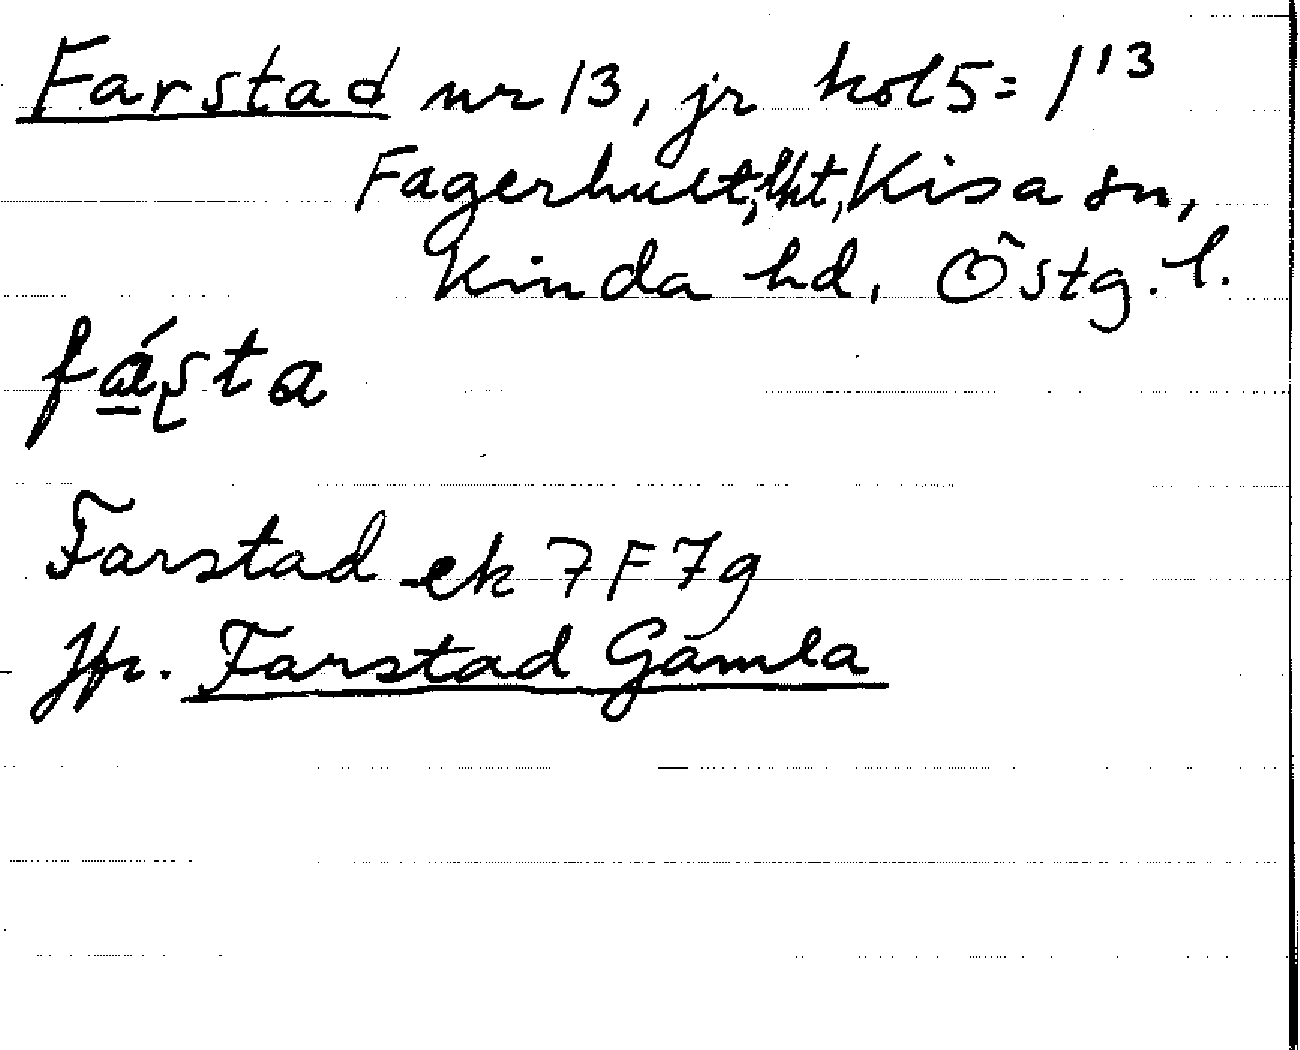 Farstad nr 13, jr kol 5 = 1¹³
Fagerhult, lht, Kisa sn,
Kinda hd, Östg. l.
fásta
Farstad ek 7F7g
Jfr. Farstad Gamla